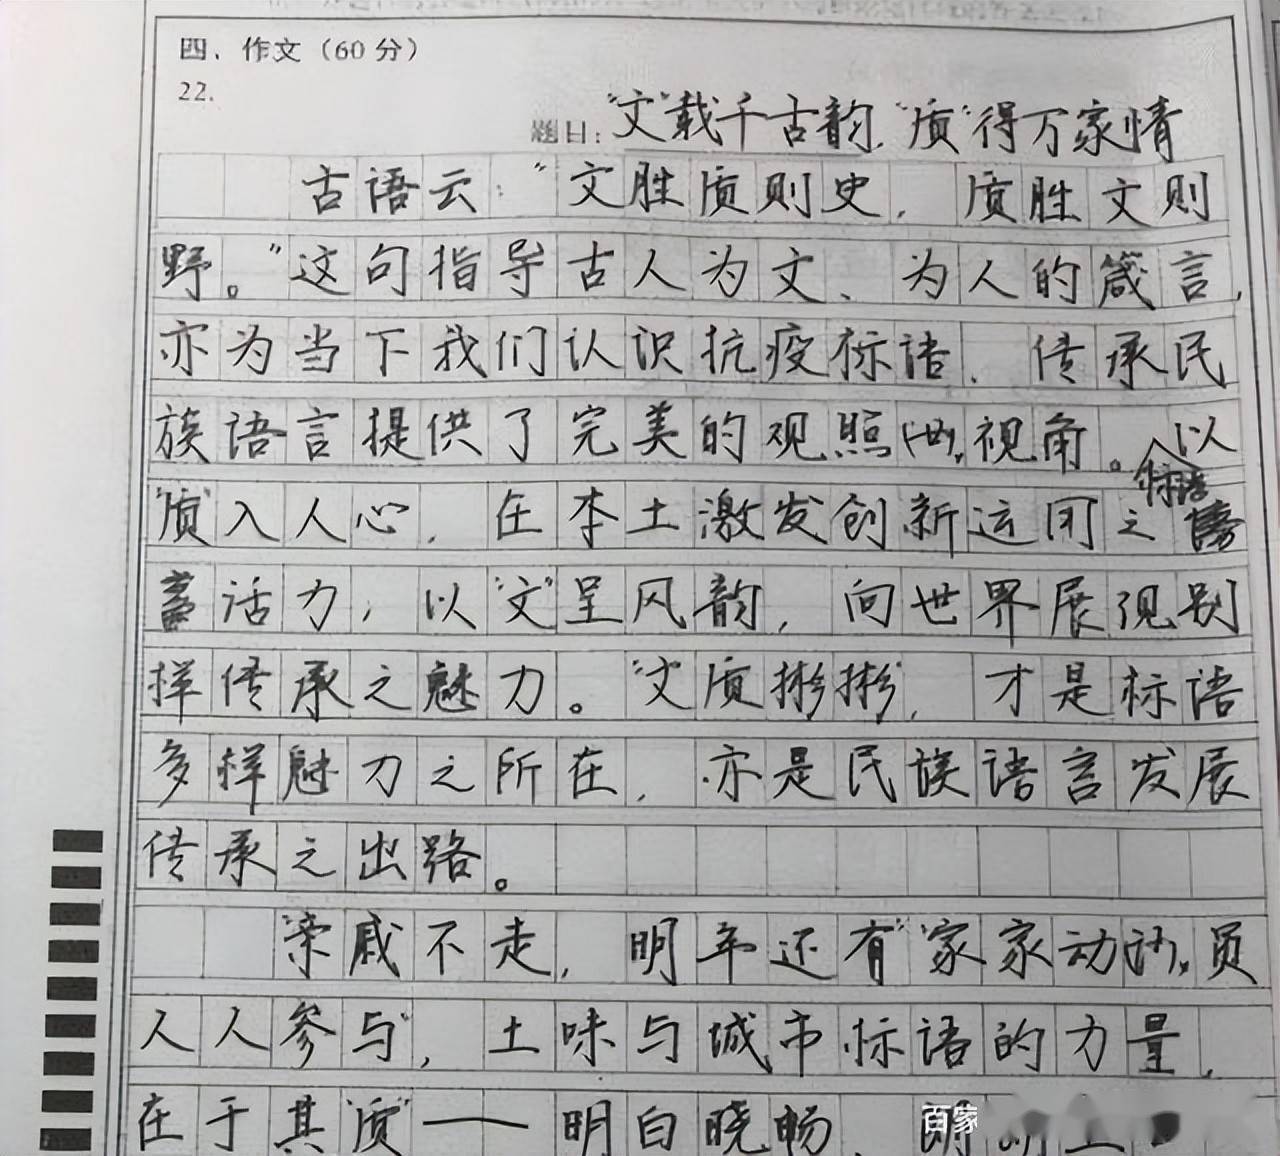 四、作文（60分）
22.
题目："文"载千古韵,"质"得万家情
古语云："文胜质则史，质胜文则
野。"这句指导古人为文、为人的箴言，
亦为当下我们认识抗疫标语、传承民
族语言提供了完美的观照视角。以
"质"入人心，在本土激发创新运用之标语
活力，以"文"呈风韵，向世界展现别
样传承之魅力。"文质彬彬"，才是标语
多样魅力之所在，亦是民族语言发展
传承之出路。
"亲戚不走，明年还有""家家动员
人人参与"，土味与城市标语的力量，
在于其"质"——明白晓畅、朗朗上口
百家